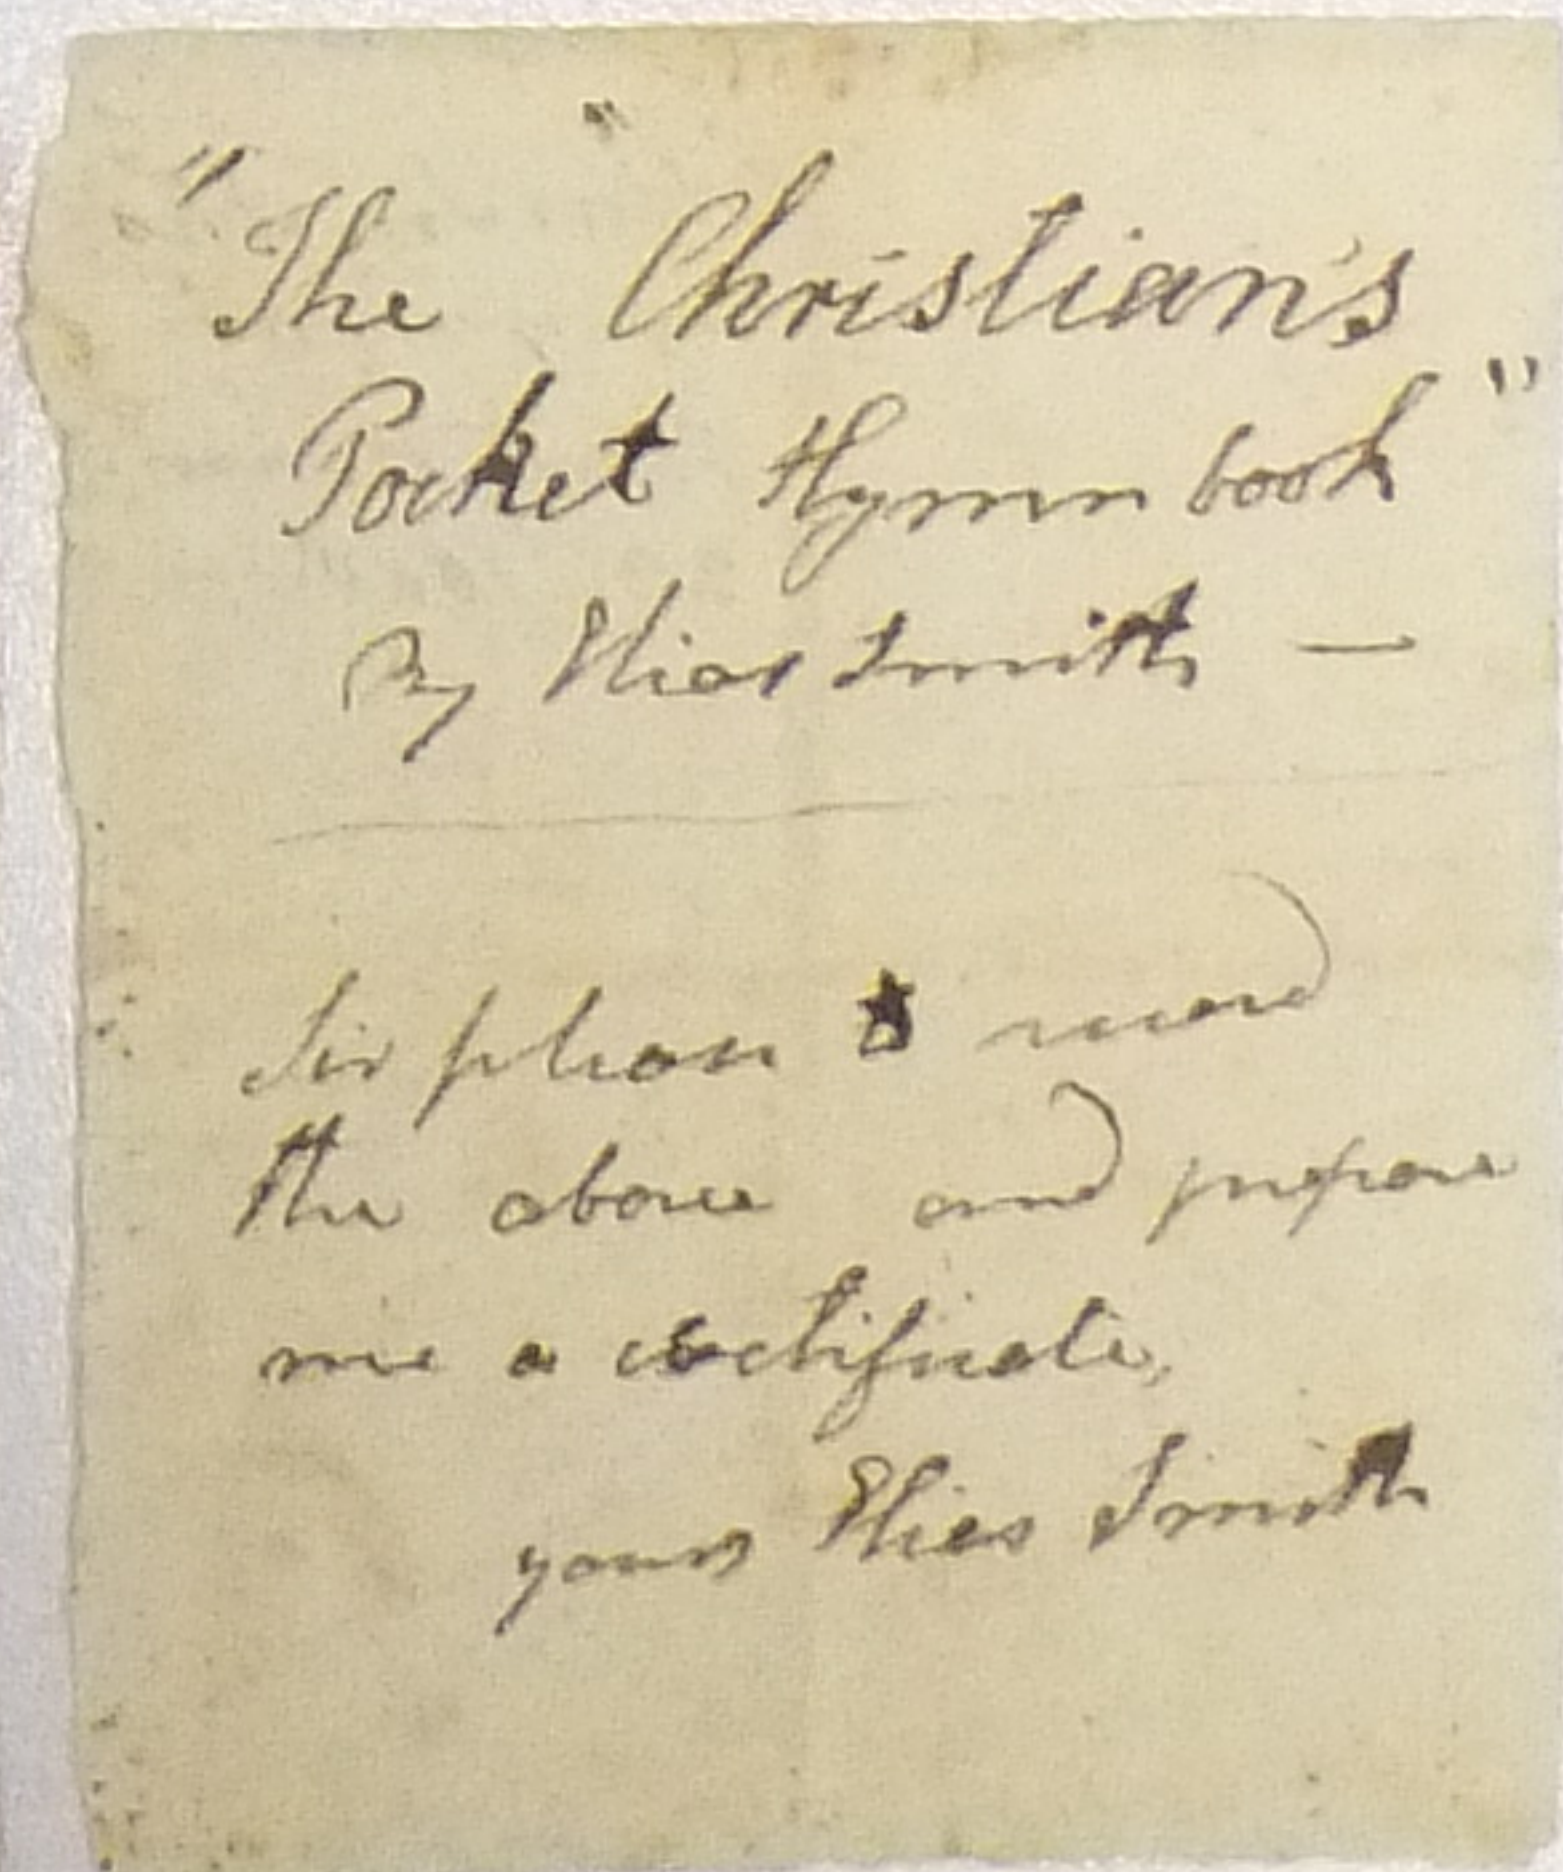 "The Christian's
Pocket Hymn book"
By Elias Smith —
Sir please to record
the above and prepare
me a certificate,
yours Elias Smith